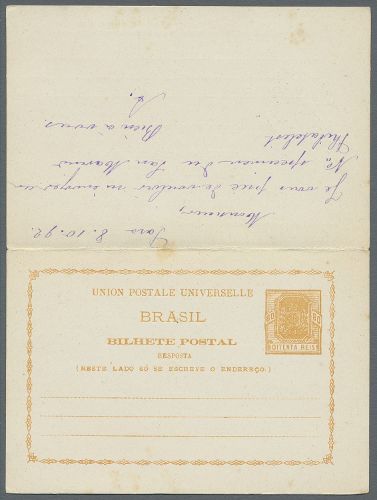 Para 8.10.92.
Monsieur,
Je vous prie de vouloir m'envoyer un
No. specimen du San Marino
Philatelist
Bien à vous.
UNION POSTALE UNIVERSELLE
BRASIL
BILHETE POSTAL
RESPOSTA
(NESTE LADO SÓ SE ESCREVE O ENDEREÇO.)
80 80
OITENTA REIS